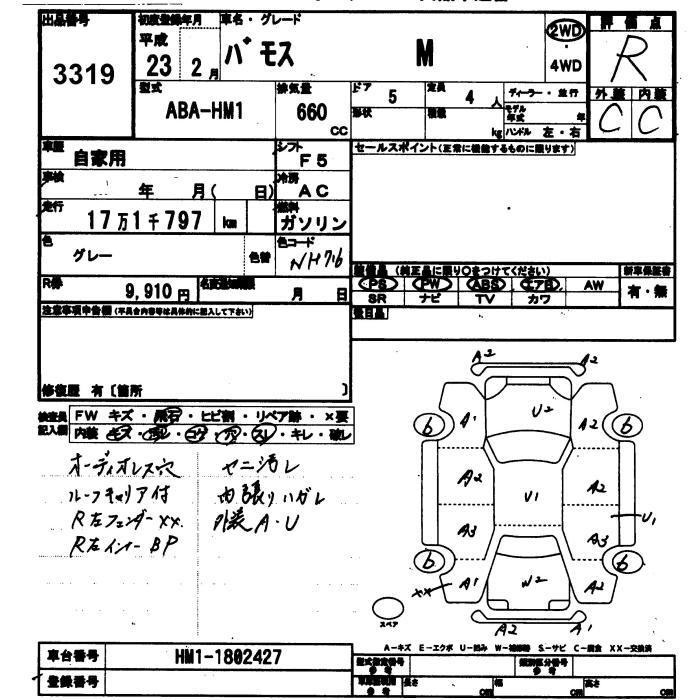 出品番号
3319
初度登録年月
平成
23 2月
車名・グレード
バモス M
2WD
・
4WD
評価点
R
外装 内装
C C
型式
ABA-HM1
排気量
660
CC
ドア 5
定員 4 人
形状
積載 kg
ディーラー・並行
モデル年式 年
ハンドル 左・右
車歴
自家用
シフト
F5
車検
年 月( 日)
冷房
AC
走行
17万1千797 km
燃料
ガソリン
色
グレー
色替
色コード
NH716
R券
9,910円
名変期限
月 日
セールスポイント(正常に機能するものに限ります)
装備品 (純正品に限り○をつけてください)
新車保証書
PS PW ABS エアB AW
有・無
SR ナビ TV カワ
後日品
注意事項申告欄(不具合内容等は具体的に記入して下さい)
修復歴 有〔箇所 〕
検査員
記入欄
FW キズ・飛石・ヒビ割・リペア跡・×要
内装 キズ・汚レ・コゲ・穴・スレ・キレ・破レ
オーディオレス穴
ルーフキャリア付
R左フェンダーXX
R左インナーBP
セニ汚レ
内張りハガレ
外装A・U
A2 A2
A1 U2 A2
6 6
A2 U1 A2
U1
A3 A3
6 6
XX A1 W2 A2
A2 A1
スペア
A-キズ E-エクボ U-凹み W-補修跡 S-サビ C-腐食 XX-交換済
車台番号 HM1-1802427
登録番号
型式指定番号
参考
類別区分番号
参考
長さ cm
幅 cm
高さ cm